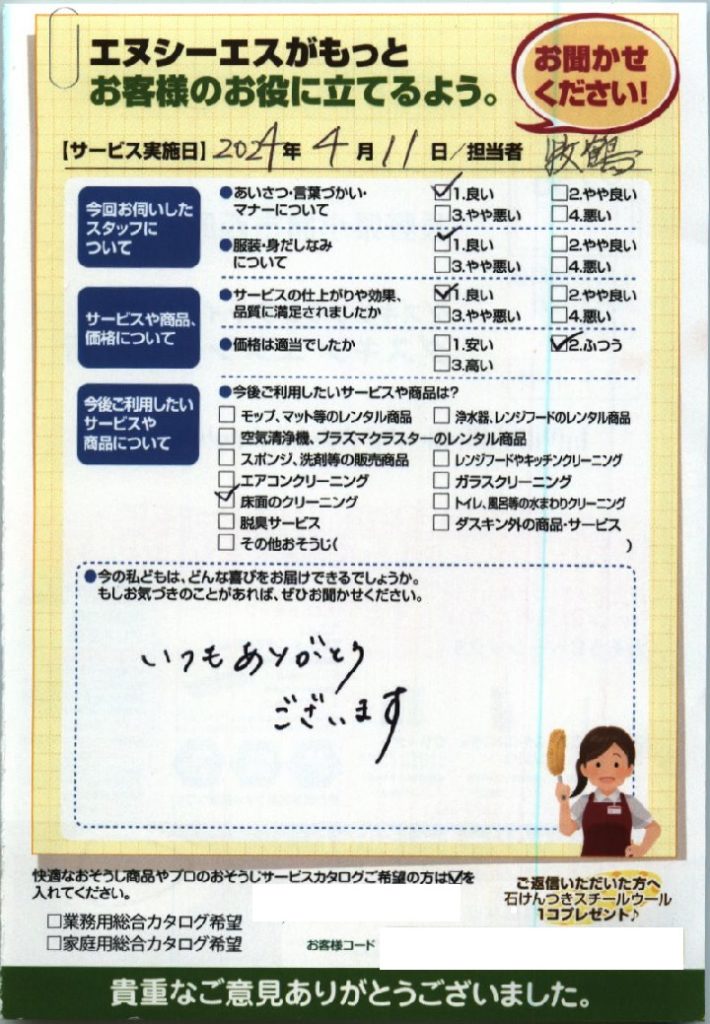 エヌシーエスがもっと
お客様のお役に立てるよう。
お聞かせ
ください!
【サービス実施日】2024年 4月 11日/担当者 牧鶴
今回お伺いした
スタッフに
ついて
●あいさつ・言葉づかい・
マナーについて
☑1.良い □2.やや良い
□3.やや悪い □4.悪い
●服装・身だしなみ
について
☑1.良い □2.やや良い
□3.やや悪い □4.悪い
サービスや商品、
価格について
●サービスの仕上がりや効果、
品質に満足されましたか
☑1.良い □2.やや良い
□3.やや悪い □4.悪い
●価格は適当でしたか
□1.安い ☑2.ふつう
□3.高い
今後ご利用したい
サービスや
商品について
●今後ご利用したいサービスや商品は?
□ モップ、マット等のレンタル商品 □ 浄水器、レンジフードのレンタル商品
□ 空気清浄機、プラズマクラスターのレンタル商品
□ スポンジ、洗剤等の販売商品 □ レンジフードやキッチンクリーニング
□ エアコンクリーニング □ ガラスクリーニング
☑ 床面のクリーニング □ トイレ、風呂等の水まわりクリーニング
□ 脱臭サービス □ ダスキン外の商品・サービス
□ その他おそうじ( )
●今の私どもは、どんな喜びをお届けできるでしょうか。
もしお気づきのことがあれば、ぜひお聞かせください。
いつもありがとう
ございます
快適なおそうじ商品やプロのおそうじサービスカタログご希望の方は☑を
入れてください。
□業務用総合カタログ希望
□家庭用総合カタログ希望
お客様コード
ご返信いただいた方へ
石けんつきスチールウール
1コプレゼント♪
貴重なご意見ありがとうございました。